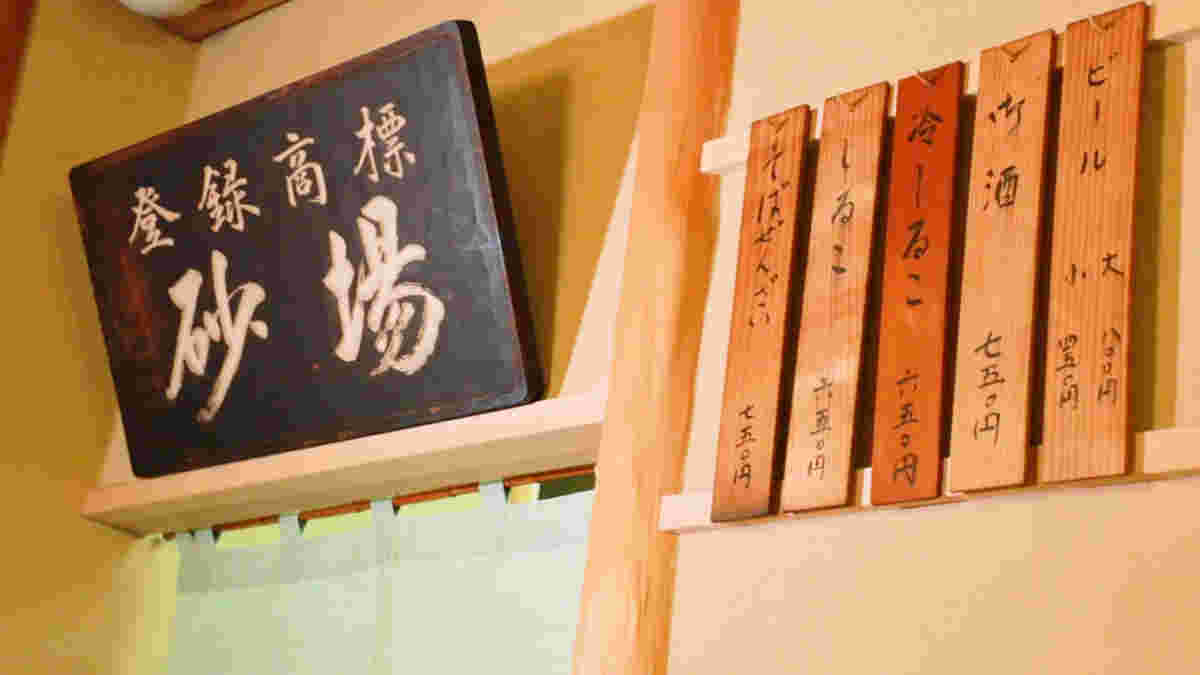 登録商標
砂場
ビール
大 八〇〇円
小 四五〇円
御酒 七五〇円
冷しるこ 六五〇円
しるこ 六五〇円
そばぜんざい 七五〇円